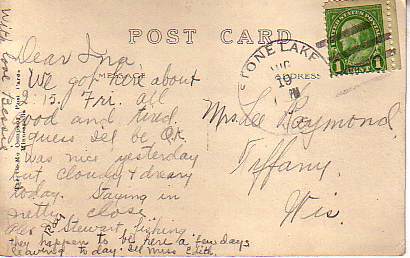 POST CARD
MESSAGE
ADDRESS
STONE LAKE
AUG
19
PM
UNITED STATES POSTAGE
1 1
Dear Ina
We got here about
15. Fri. all
good and tired.
guess I'll be O.K.
was nice yesterday
but, cloudy & dreary
today. Staying in
pretty close.
Stewart, fishing
they happen to be here a few days
leaving to day. Ill miss Edith.
With love
Mrs Lee Raymond,
Tiffany,
Wis.
Company, Post Cards
Minneapolis